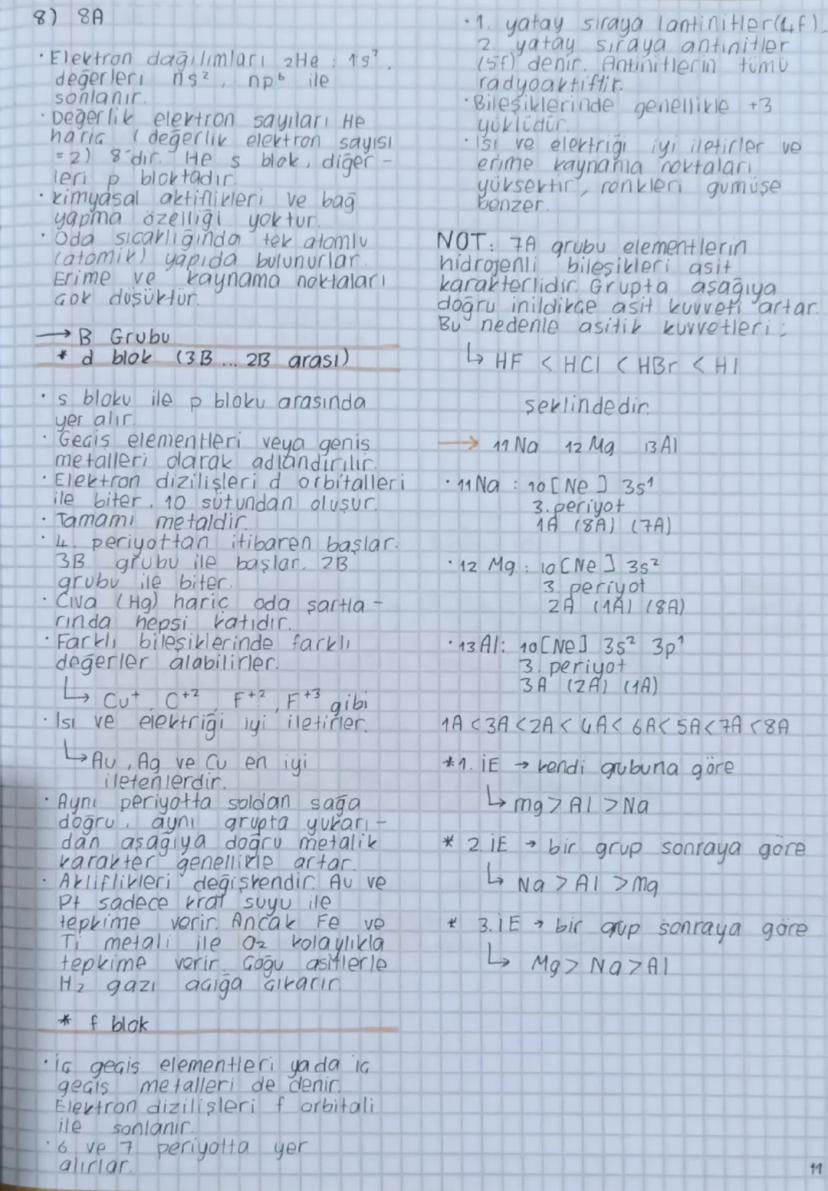 8) 8A
· Elektron dağılımları ₂He : 1s².
değerleri ns², np⁶ ile
sonlanır.
· Değerlik elektron sayıları He
hariç (değerlik elektron sayısı
= 2) 8'dir. He s blok, diğer-
leri p bloktadır.
· Kimyasal aktiflikleri ve bağ
yapma özelliği yoktur.
· Oda sıcaklığında tek atomlu
(atomik) yapıda bulunurlar.
Erime ve kaynama noktaları
çok düşüktür.
→ B Grubu
* d blok (3B ... 2B arası)
· s bloku ile p bloku arasında
yer alır.
· Geçiş elementleri veya geniş
metalleri olarak adlandırılır.
· Elektron dizilişleri d orbitalleri
ile biter. 10 sütundan oluşur.
· Tamamı metaldir.
· 4. periyottan itibaren başlar.
3B grubu ile başlar. 2B
grubu ile biter.
· Civa (Hg) hariç oda şartla-
rında hepsi katıdır.
· Farklı bileşiklerinde farklı
değerler alabilirler.
↳ Cu⁺, C⁺², F⁺², F⁺³ gibi
· Isı ve elektriği iyi iletirler.
↳ Au, Ag ve Cu en iyi
iletenlerdir.
· Aynı periyotta soldan sağa
doğru, aynı grupta yukarı-
dan aşağıya doğru metalik
karakter genellikle artar.
· Akliflikleri değişkendir. Au ve
Pt sadece kral suyu ile
tepkime verir. Ancak Fe ve
Ti metali ile O₂ kolaylıkla
tepkime verir. Çoğu asitlerle
H₂ gazı açığa çıkarır.
* f blok
· iç geçiş elementleri yada iç
geçiş metalleri de denir.
Elektron dizilişleri f orbitali
ile sonlanır.
· 6 ve 7 periyotta yer
alırlar.
· 1. yatay sıraya lantinitler (4f).
2. yatay sıraya antinitler
(5f) denir. Antinitlerin tümü
radyoaktiftir.
· Bileşiklerinde genellikle +3
yüklüdür.
· Isı ve elektriği iyi iletirler ve
erime kaynama noktaları
yüksektir, renkleri gümüşe
benzer.
NOT: 7A grubu elementlerin
hidrojenli bileşikleri asit
karakterlidir. Grupta aşağıya
doğru inildikçe asit kuvveti artar.
Bu nedenle asitik kuvvetleri :
↳ HF < HCl < HBr < HI
şeklindedir.
→ ₁₁Na ₁₂Mg ₁₃Al
· ₁₁Na : ₁₀[Ne] 3s¹
3. periyot
1A (8A) (7A)
· ₁₂Mg : ₁₀[Ne] 3s²
3 periyot
2A (1A) (8A)
· ₁₃Al : ₁₀[Ne] 3s² 3p¹
3. periyot
3A (2A) (1A)
1A < 3A < 2A < 4A < 6A < 5A < 7A < 8A
*1. İE → kendi grubuna göre
↳ mg > Al > Na
* 2 İE → bir grup sonraya göre
↳ Na > Al > mg
* 3. İE → bir grup sonraya göre
↳ Mg > Na > Al
11